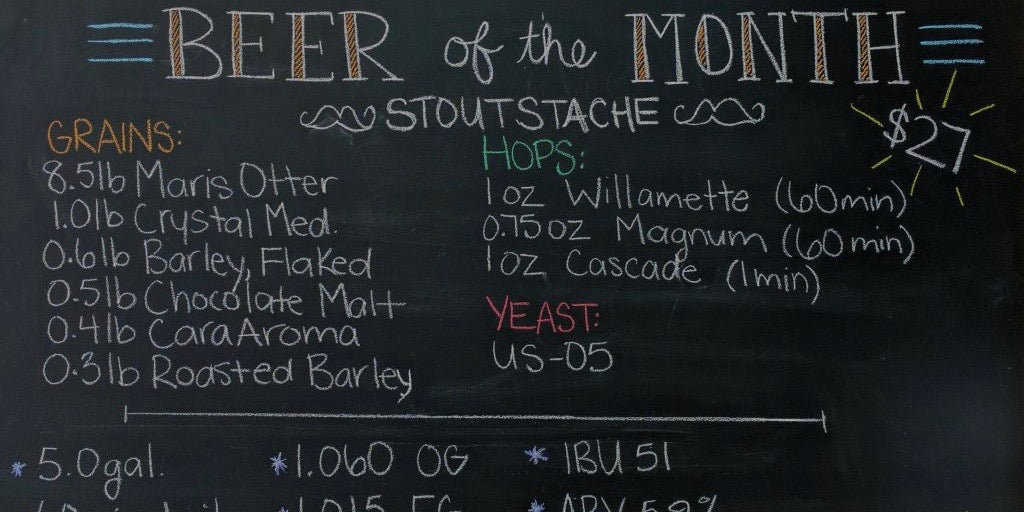 BEER of the MONTH
STOUTSTACHE
$27
GRAINS:
8.5lb Maris Otter
1.0lb Crystal Med.
0.6lb Barley, Flaked
0.5lb Chocolate Malt
0.4lb CaraAroma
0.3lb Roasted Barley
HOPS:
1oz Willamette (60min)
0.75oz Magnum (60min)
1oz Cascade (1min)
YEAST:
US-05
* 5.0gal. * 1.060 OG * IBU 51
* 1.015 FG * ABV 5.9%